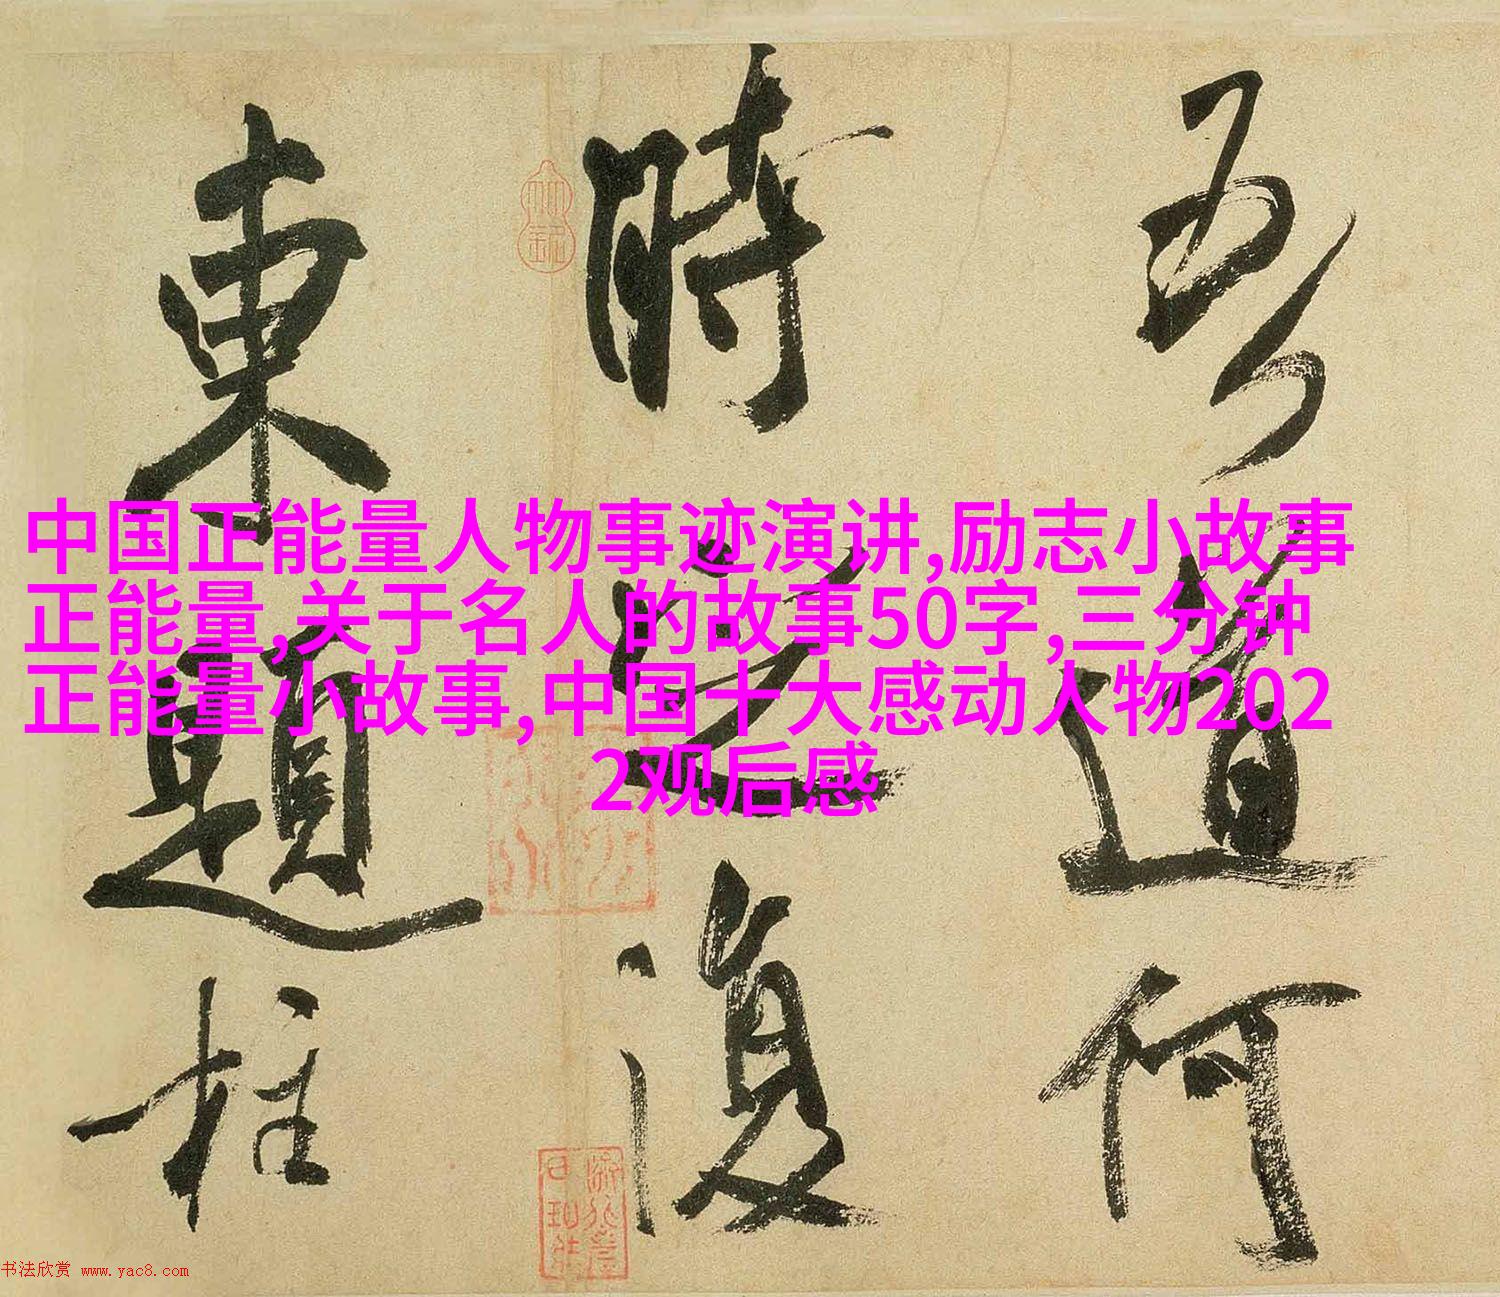 吾道何
時定復
東題柱
中国正能量人物事迹演讲,励志小故事
正能量,关于名人的故事50字,三分钟
正能量小故事,中国十大感动人物202
2观后感
书法欣赏 www.yac8.com